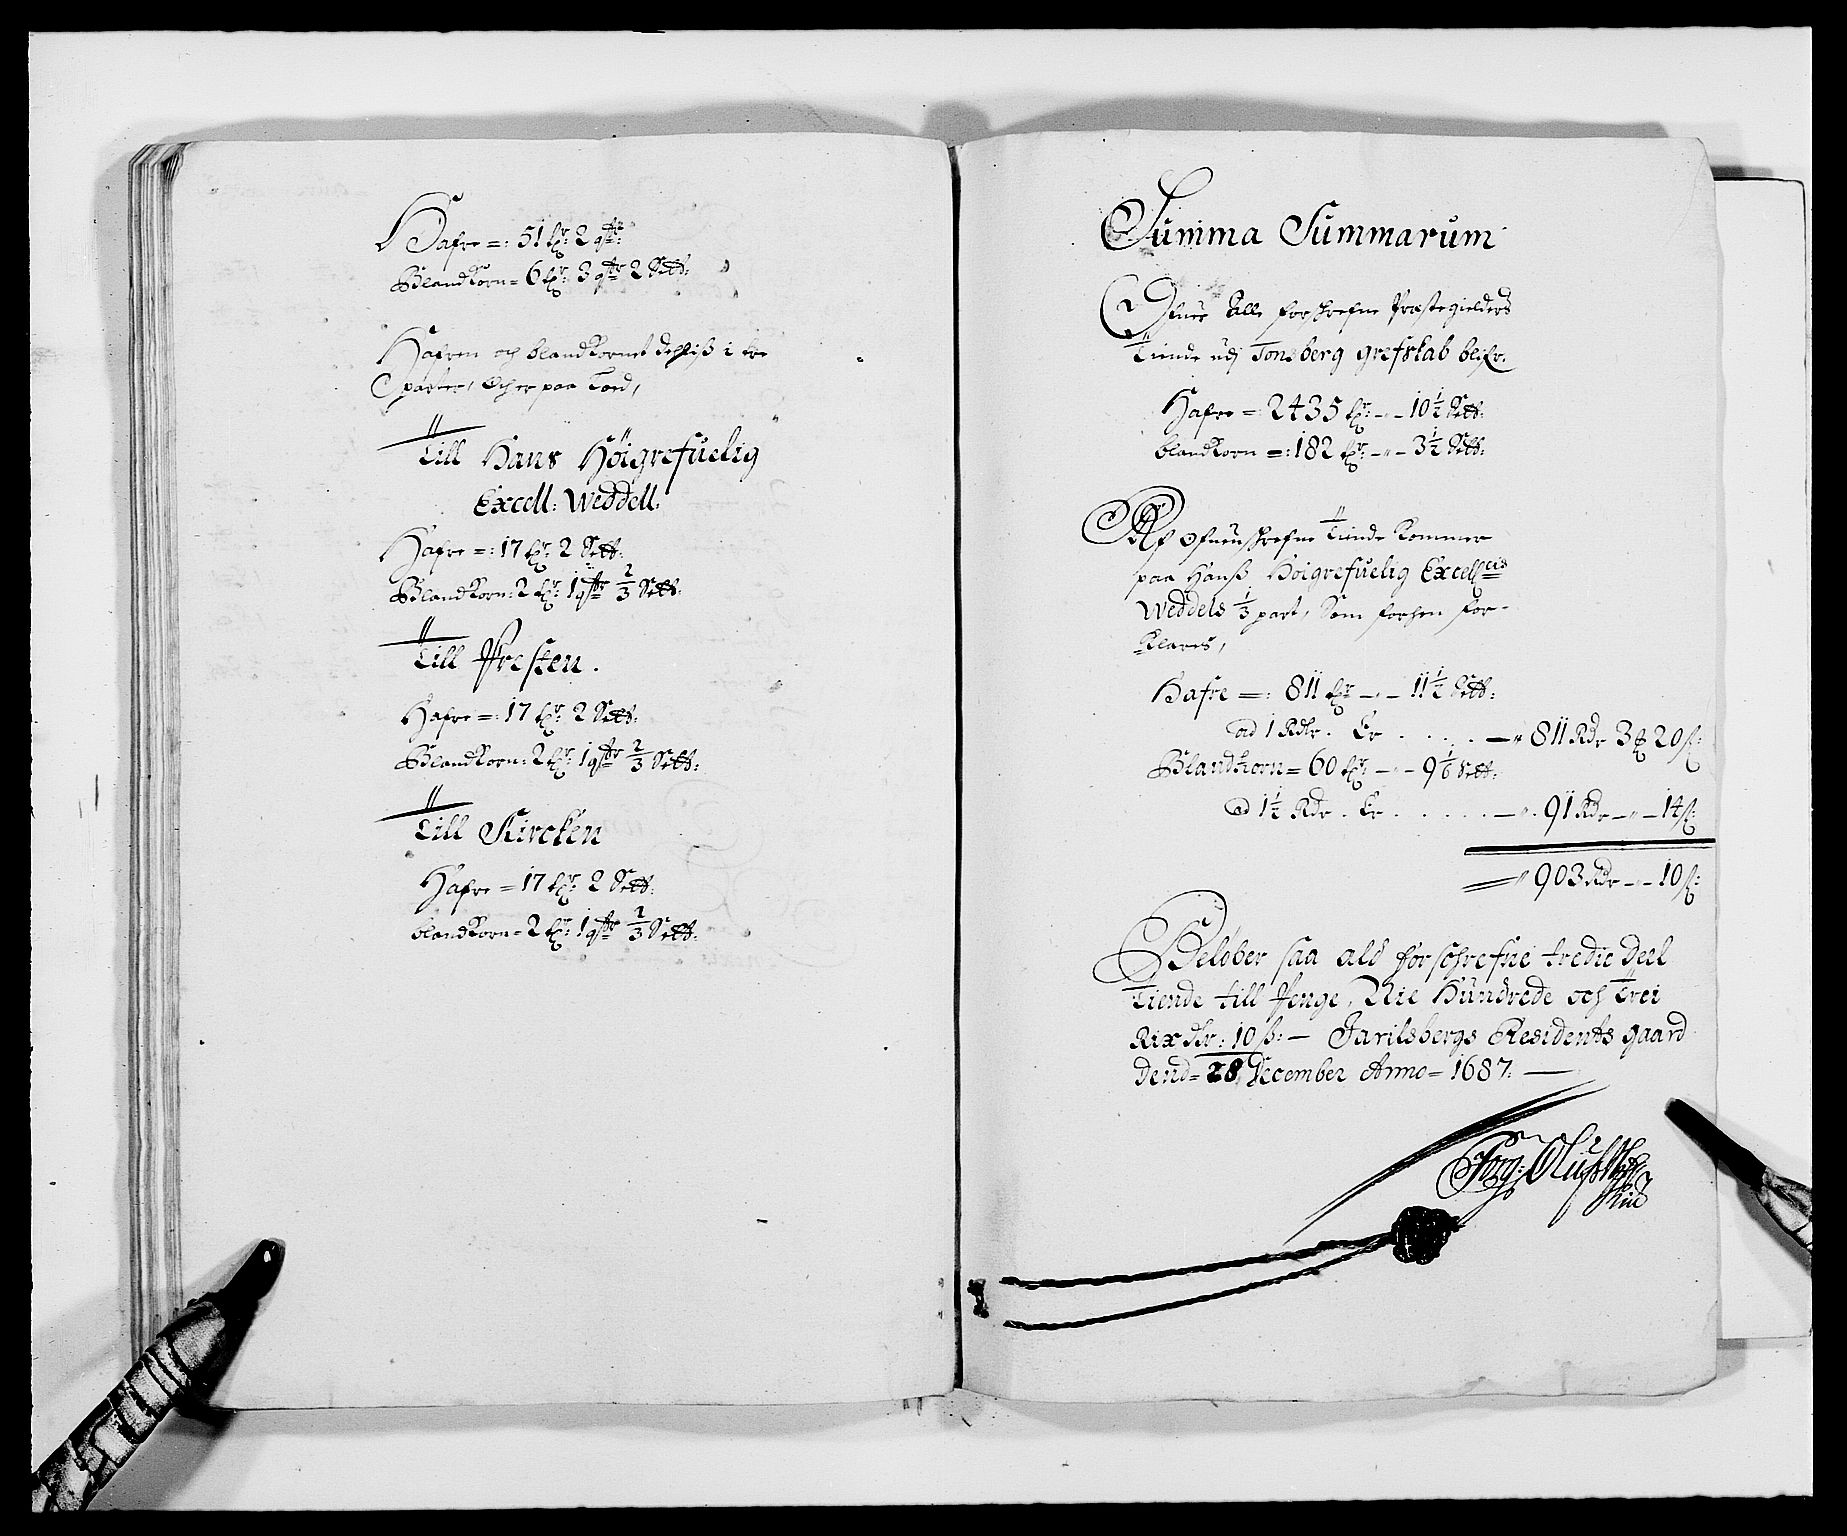 Hafre =: 51 tr: 2 qtr:
Blandkorn = 6 tr: 3 qtr 2 Sett:
Hafren och blandkornet dehliss i tre
parter, Och er paa Tord,
Till Hans Höigrefuelig
Excell: Weddell.
Hafre =: 17 tr: 2 Sett:
Blandkorn: 2 tr: 1 qtr 2/3 Sett:
Till Presten.
Hafre =: 17 tr: 2 Sett:
Blandkorn: 2 tr: 1 qtr 2/3 Sett:
Till Kircken
Hafre = 17 tr: 2 Sett:
blandkorn = 2 tr: 1 qtr 2/3 Sett:
Summa Summarum
Ofuer Alle forschrefne Præstegielders
Tiende udj Tonsberg grefskab blifr.
Hafre =: 2435 tr: – „ – 10 1/2 Sett:
blandkorn =: 182 tr: – „ – 3 1/2 Sett:
Af Ofuenschrefne Tiende Kommer
paa Hanss Höigrefuelig Excell:cis
Weddels 1/3 part, Som forhen for-
Klares,
Hafre =: 811 tr: – „ – 11 1/2 Sett:
ad 1 Rdlr. Er . . . . . – „ 811 Rdr 3 ß 20 ß:
Blandkorn = 60 tr: – „ – 9 1/6 Sett:
ad 1 1/2 Rdr. Er . . . . . . – „ 91 Rdr – „ – 14 ß:
= „ 903 Rdr – „ – 10 ß:
Beløber saa ald forschrefne tredie Deel
Tiende till Penge, Nie Hundrede och Trei
Rixdlr: 10 ß: – Jarilsbergs Residents gaard
Dend = 28 December Anno = 1687: —
Jørg: Olufs